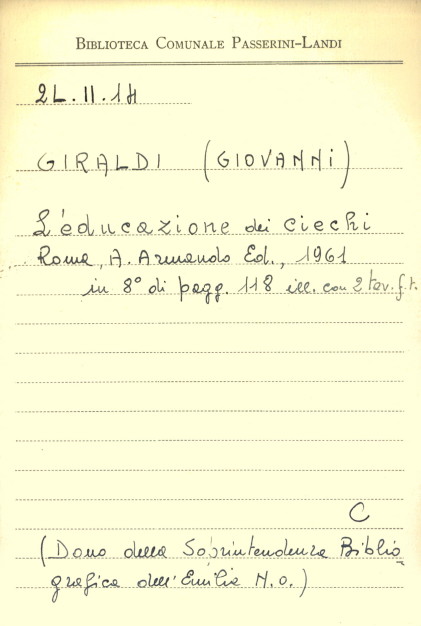 BIBLIOTECA COMUNALE PASSERINI-LANDI
2L.II.14
GIRALDI (GIOVANNI)
L'éducazione dei ciechi
Roma, A. Armando Ed., 1961
in 8° di pagg. 118 ill. con 2 tav. f.t.
C
(Dono della Soprintendenza Biblio-
grafica dell'Emilia N.O.)